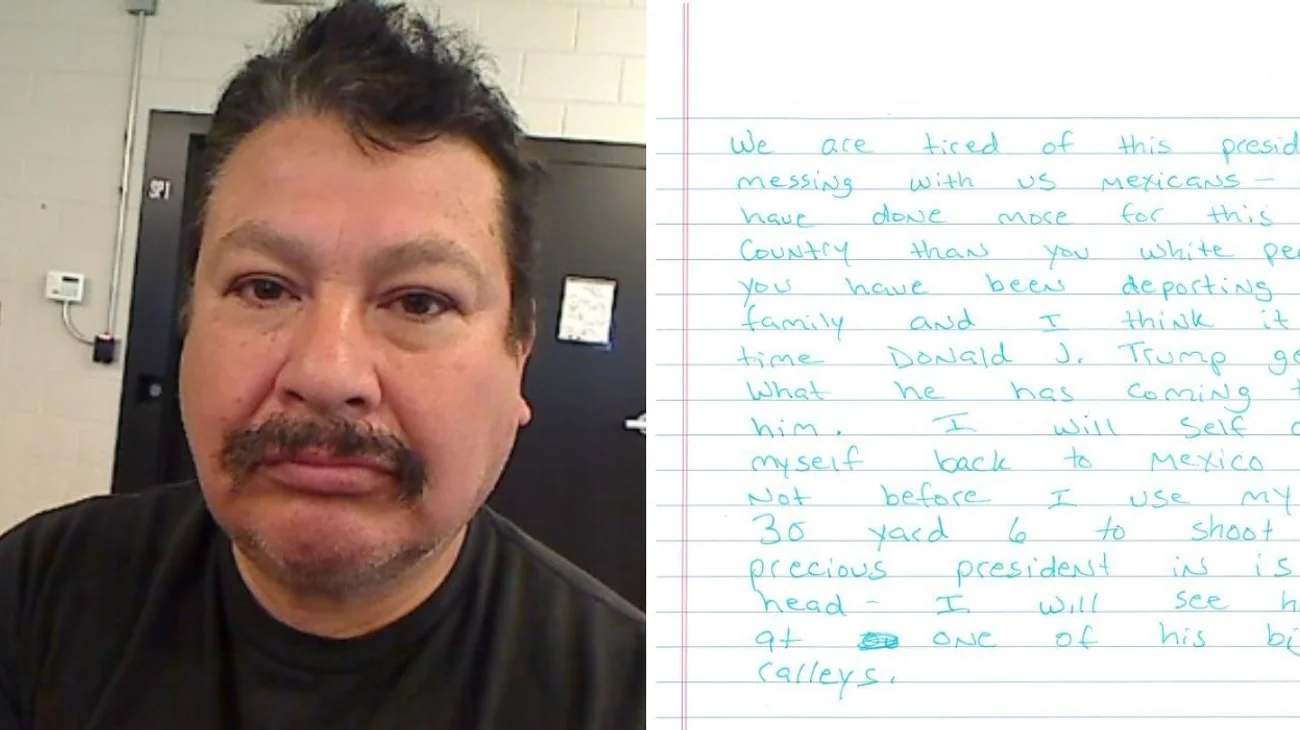 SPI
We are tired of this presid
messing with us mexicans –
have done more for this
Country than you white pe
you have been deporting
family and I think it
time Donald J. Trump ge
What he has coming t
him. I will self
myself back to mexico
Not before I use my
30 yard 6 to shoot
precious president in is
head – I will see h
at one of his bi
ralleys.